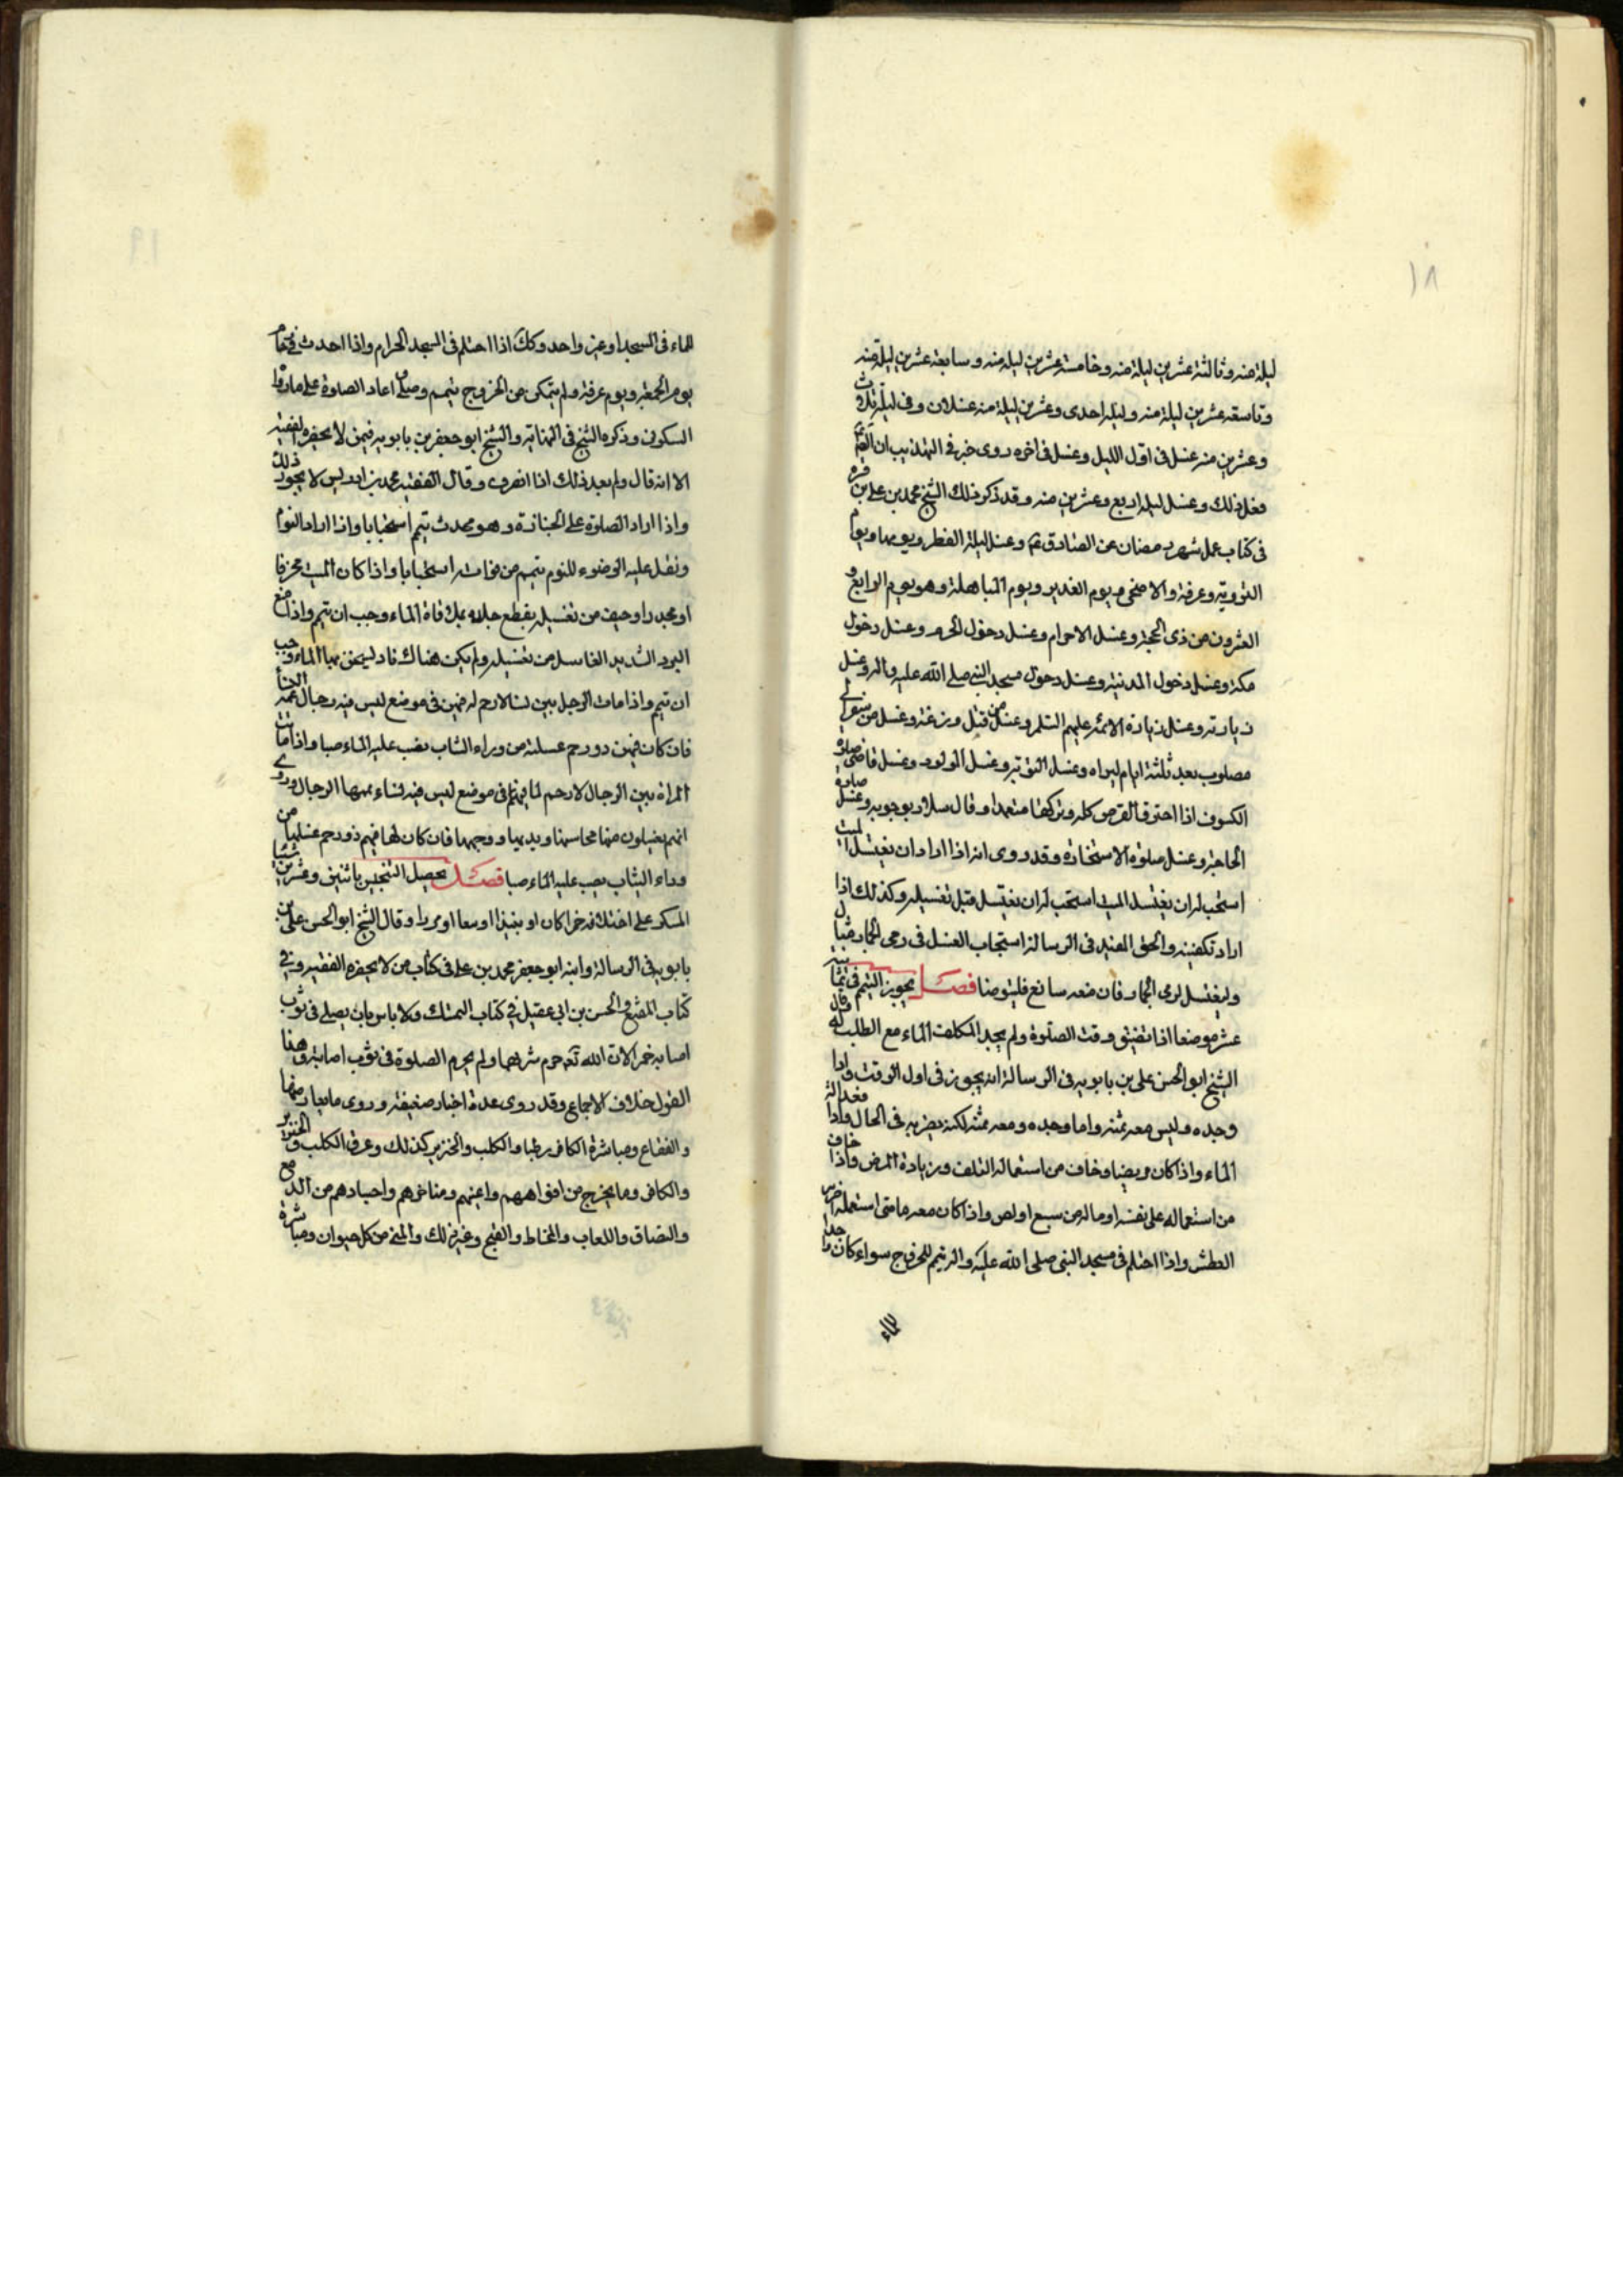 ١٨
ليلة منه وثالثة عشرين ليلة منه وخامسة عشرين ليلة منه وسابعة عشرين ليلة منه
وتاسعة عشرين ليلة منه وليلة احدى وعشرين ليلة منه غسلان وفى ليلة ثلاث
وعشرين منه غسل فى اول الليل وغسل فى اخره روى خبر فى التهذيب ان
فعل ذلك وغسل ليلة اربع وعشرين منه وقد ذكر ذلك الشيخ محمد بن على بن قره
فى كتاب عمل شهر رمضان عن الصادق ع وغسل ليلة الفطر ويومها ويوم
التروية وعرفة والاضحى ويوم الغدير ويوم المباهلة وهو يوم الرابع و
العشرون من ذى الحجة وغسل الاحرام وغسل دخول الحرم وغسل دخول
مكة وغسل دخول المدنية وغسل دخول مسجد النبى صلى الله عليه واله وغسل
زيارته وغسل زيارة الائمة عليهم السلم وغسل من قتل وزغة وغسل من سعى الى
مصلوب بعد ثلثة ايام ليراه وغسل التوبة وغسل المولود وغسل قاضى صلوة
الكسوف اذا احترق القرص كله وتركها متعمدا وقال سلار بوجوبه وغسل صلوة
الحاجة وغسل صلوة الاستخارة وقد روى انه اذا اراد ان يغتسل الميت
استحب له ان يغتسل الميت استحب له ان يغتسل قبل تغسيله وكذلك اذا
اراد تكفينه والحق المفيد فى الرسالة استحباب الغسل فى رمى الجمار فقال
وليغتسل لرمى الجمار فان منعه مانع فليتوضا فصل يجوز التيمم فى ثمانية
عشر موضعا اذا تضيق وقت الصلوة ولم يجد المكلف الماء مع الطلب له وقال
الشيخ ابو الحسن على بن بابويه فى الرسالة انه يجوز فى اول الوقت واذا
وجده وليس معه ثمنه واما وجده ومعه ثمنه لكنه يضر به فى الحال واذا فقد الة
الماء واذا كان مريضا وخاف من استعماله التلف وزيادة المرض واذا خاف
من استعماله على نفسه او ماله من سبع او لص واذا كان معه ما متى استعمله اضر به
العطش واذا احتلم فى مسجد النبى صلى الله عليه واله تيمم للخروج سواء كان واجدا
للماء
للماء فى المسجد او غير واحد وكك اذا احتلم فى المسجد الحرام واذا احدث فى مقام
يوم الجمعة ويوم عرفة ولم يتمكن من الخروج تيمم وصلى اعاد الصلوة على ما رواه
السكونى وذكره الشيخ فى النهاية والشيخ ابو جعفر بن بابويه فيمن لا يحضره الفقيه
الا انه قال ولم يعد ذلك اذا انصرف وقال الفقيه محمد بن ادريس لا يجوز ذلك
واذا اراد الصلوة على الجنازة وهو محدث تيمم استحبابا واذا اراد النوم
وثقل عليه الوضوء للنوم تيمم من استحبابا واذا كان الميت محرقا
او مجدرا وخيف من تغسيله يقطع جلده بملاقاة الماء وجب ان تيمم واذا منع
البرد الشديد الغاسل من تغسيله ولم يكن هناك نار ليسخن بها الماء وجب
ان تيمم واذا مات الرجل بين نساء لا رحم له فيهن فى موضع ليس فيه رجال
فان كان فيهن ذو رحم غسلته من وراء الثياب يصب عليه الماء صبا واذا ماتت
المراة بين الرجال لا رحم لها فيهم فى موضع ليس فيه نساء يممها الرجال وروى
انهم يغسلون منها محاسنها ويديها ووجهها فان كان لها فيهم ذو رحم غسلها من
وراء الثياب يصب عليه الماء صبا فصل يحصل التنجيس باثنين وعشرين شيئا
المسكر على اختلافه خمرا كان او نبيذا او وقال الشيخ ابو الحسن على بن
بابويه فى الرسالة وابنه ابو جعفر محمد بن على فى كتاب من لا يحضره الفقيه وفى
كتاب المقنع والحسن بن ابى عقيل فى كتاب المتمسك ولا باس بان يصلى فى ثوب
اصابه خمر الان الله تعه حرم شربها ولم يحرم الصلوة فى ثوب اصابته وهذا
القول خلاف الاجماع وقد روى عدة اخبار ضعيفة وروى ما يعارضها
والفقاع ومباشرة الكافر رطبا والكلب والخنزير كذلك وعرق الكلب والخنزير
والكافر وما يخرج من افواههم واعينهم ومناخرهم واجسادهم من الدمع
والبصاق واللعاب والمخاط والقيح وغير ذلك والمنى من كل حيوان ومباشرة